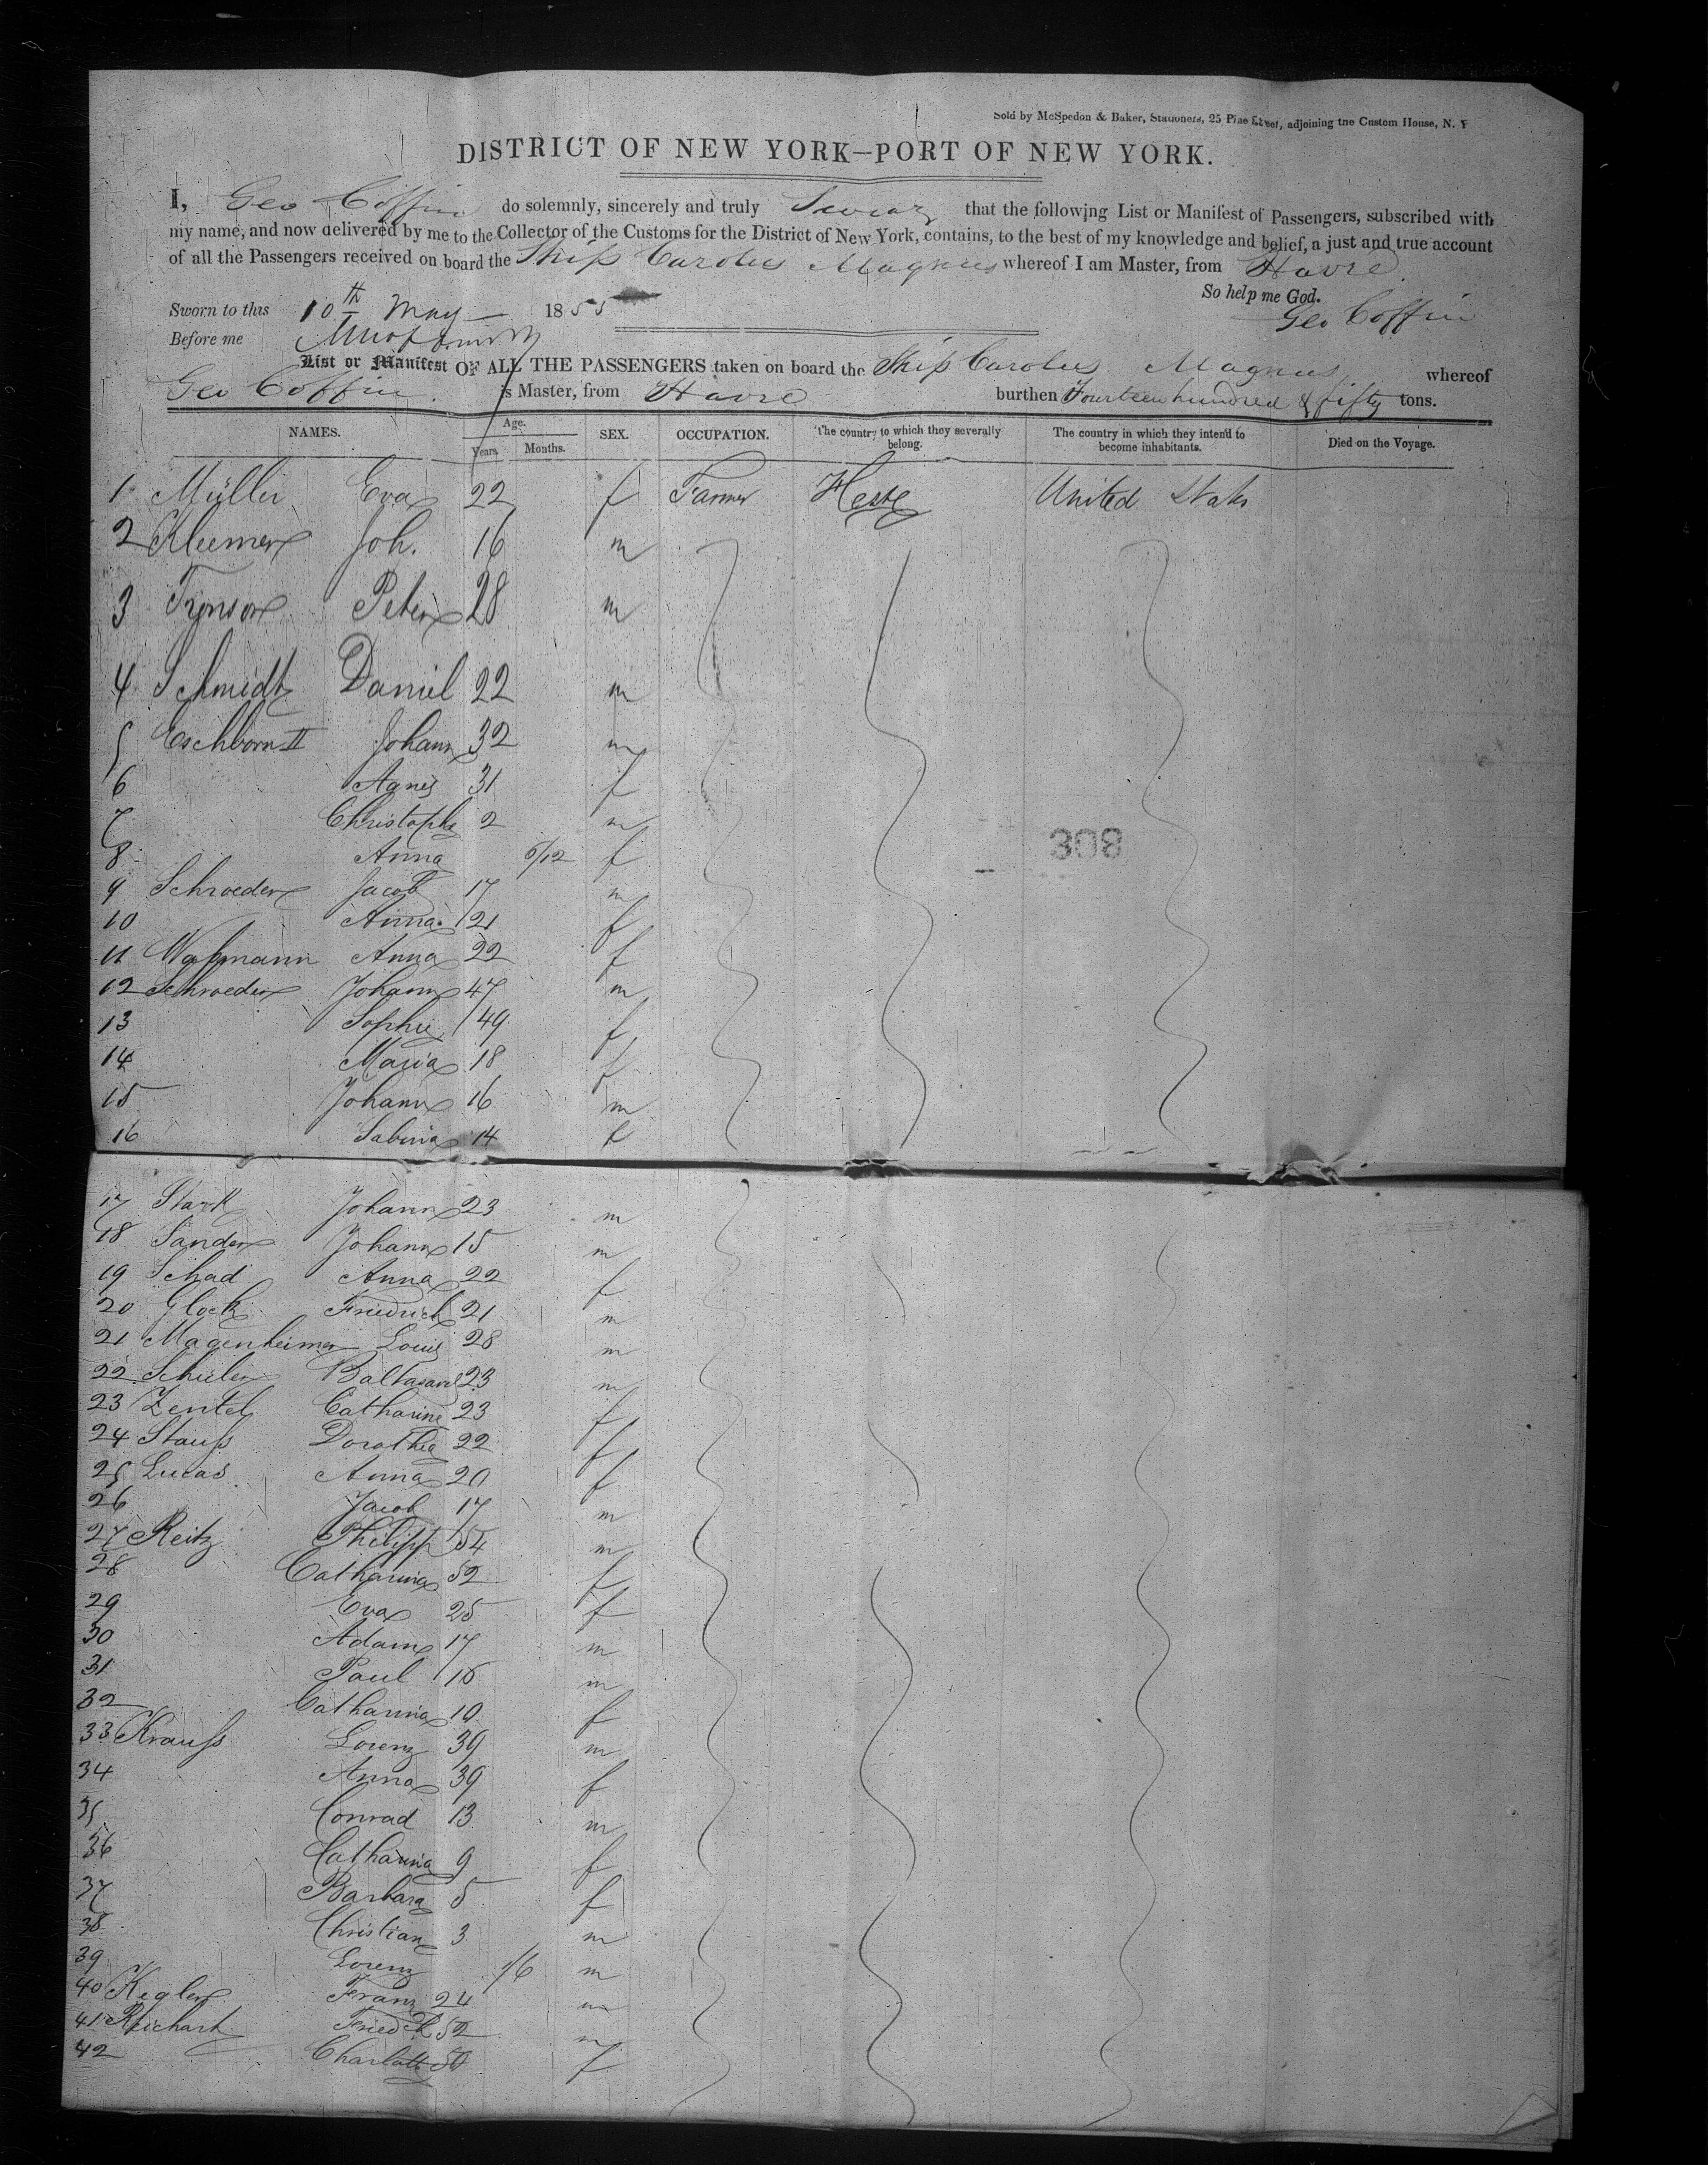 Sold by McSpedon & Baker, Stationers, 25 Pine Street, adjoining the Custom House, N. Y
DISTRICT OF NEW YORK—PORT OF NEW YORK.
I, Geo Coffin do solemnly, sincerely and truly Swear that the following List or Manifest of Passengers, subscribed with
my name, and now delivered by me to the Collector of the Customs for the District of New York, contains, to the best of my knowledge and belief, a just and true account
of all the Passengers received on board the Ship Carolus Magnus whereof I am Master, from Havre.
So help me God.
Sworn to this 10th May 1855
Geo Coffin
Before me
List or Manifest OF ALL THE PASSENGERS taken on board the Ship Carolus Magnus whereof
Geo Coffin. is Master, from Havre burthen Fourteen hundred & fifty tons.
NAMES. Age. Years. Months. SEX. OCCUPATION. The country to which they severally belong. The country in which they intend to become inhabitants. Died on the Voyage.
1 Müller Eva 22 f Farmer Hesse United States
2 Kleemer Joh. 16 m
3 Peter 28 m
4 Schmidt Daniel 22 m
5 Eschborn II Johann 32 m
6 Agnes 31 f
7 Christoph 2 m
8 Anna 6/12 f
308
9 Schroeder Jacob 17 m
10 Anna 21 f
11 Waßmann Anna 22 f
12 Schroeder Johann 47 m
13 Sophie 49 f
14 Maria 18 f
15 Johann 16 m
16 Sabina 14 f
17 Stark Johann 23 m
18 Sander Johann 15 m
19 Schad Anna 22 f
20 Glock Friedrich 21 m
21 Magenheimer Louis 28 m
22 Schuler Baltasard 23 m
23 Zentel Catharine 23 f
24 Stauß Dorothea 22 f
25 Lucas Anna 20 f
26 Jacob 17 m
27 Reitz Philipp 54 m
28 Catharina 52 f
29 Eva 25 f
30 Adam 17 m
31 Paul 16 m
32 Catharina 10 f
33 Krauß Lorenz 39 m
34 Anna 39 f
35 Conrad 13 m
36 Catharina 9 f
37 Barbara 5 f
38 Christian 3 m
39 Lorenz 1/6 m
40 Kegler Franz 24 m
41 Reichart Friedch 52 m
42 Charlotte 50 f